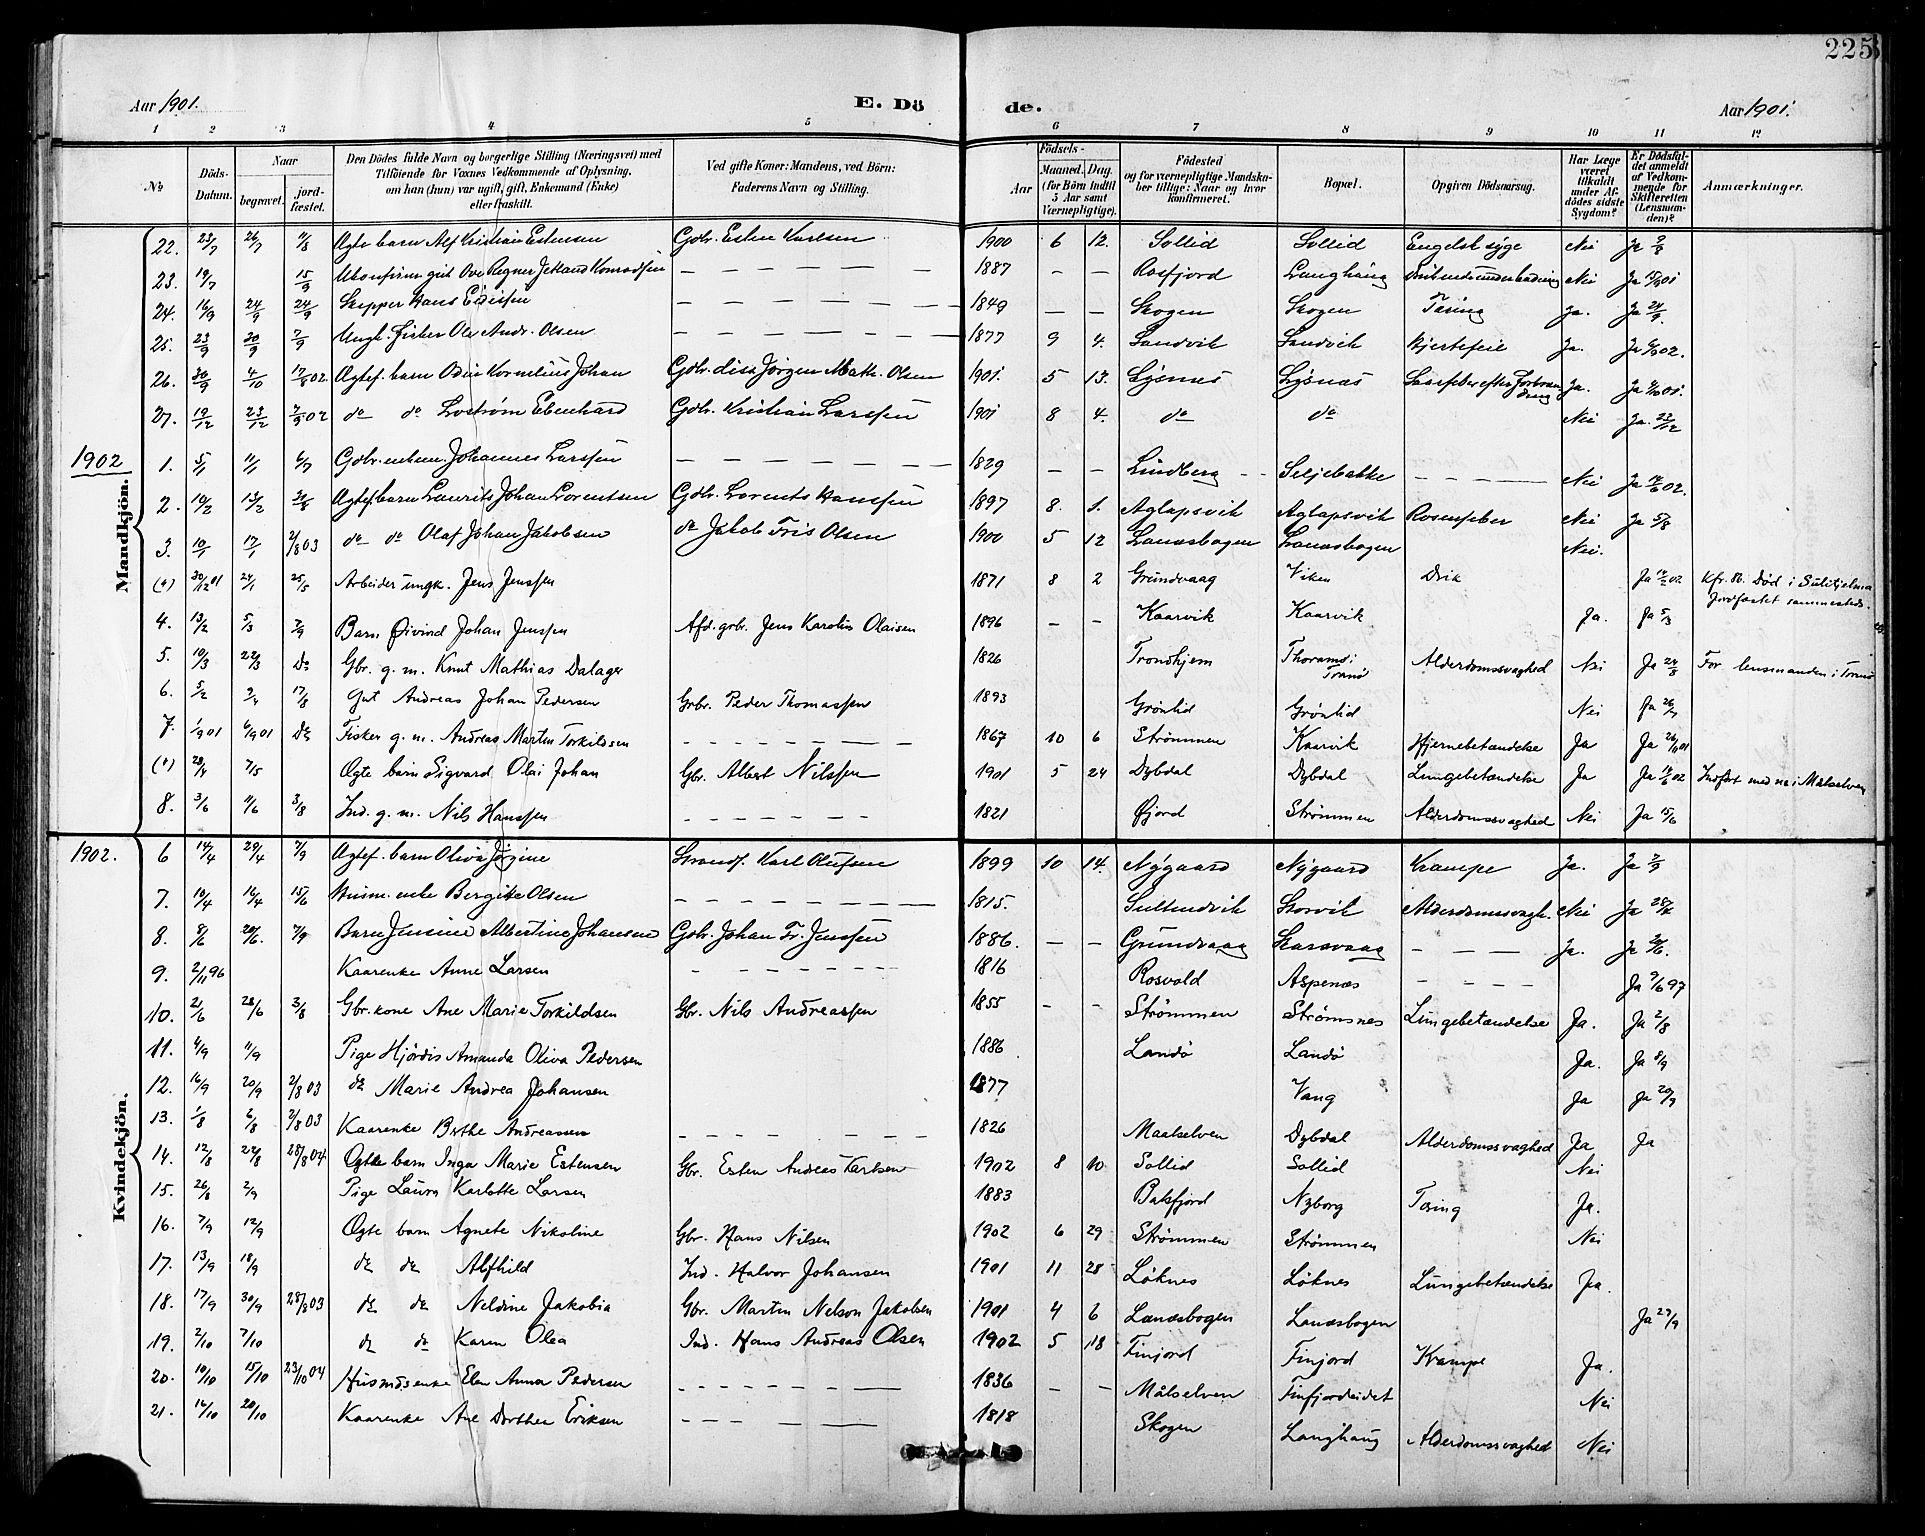 225
Aar 1901. E. Dö de. Aar 1901.
1 2 3 4 5 6 7 8 9 10 11 12
No Döds-Datum. Naar begravet. jordfæstet. Den Dödes fulde Navn og borgerlige Stilling (Næringsvei) med Tilföiende for Voxnes Vedkommende af Oplysning, om han (hun) var ugift, gift, Enkemand (Enke) eller fraskilt. Ved gifte Koner: Mandens, ved Börn: Faderens Navn og Stilling. Födsels- Aar Maaned. Dag. (for Börn indtil 5 Aar samt Værnepligtige). Födested og for værnepligtige Mandskaber tillige: Naar og hvor konfirmeret. Bopæl. Opgiven Dödsaarsag. Har Læge været tilkaldt under Afdödes sidste Sygdom? Er Dödsfaldet anmeldt af Vedkommende for Skifteretten (Lensmanden)? Anmærkninger.
Mandkjön.
22. 23/7 26/7 11/8 Ægte barn Alf Kristian Estensen Gdbr. Esten Karlsen 1900 6 12. Sollid Sollid Engelsk syge Nei Ja
23. 19/7 15/9 Ukonfirm. gut Ove Regner Jetland Konradsen — — — — 1887 — — Rosfjord Langhaug Nei Ja
24. 16/9 24/9 24/9 Skipper Hans Eidissen — — — — 1849 — — Skogen Skogen Tæring Ja. Ja 24/9.
25. 23/9 30/9 7/9 Ungk. fisker Ole Andr. Olsen — — — — 1877 9 4. Sandvik Sandvik Hjertefeil Ja. Ja
26. 30/9 4/10 17/8 02. Ægtef. barn Odin Kornelius Johan Gdbr. Jörgen Math. Olsen 1901. 5 13. Lysnes Lysnæs Ja.
27. 19/12 23/12 7/9 02 do do Lostrøm Eberhard Gdbr. Kristian Larssen 1901 8 4. do do Nei Ja. 23/12
1902 1. 5/1 11/1 6/7 Gdbr. enkem. Johannes Larssen — — — — 1829 — — Lindberg Seljebakke — — — Nei Ja
2. 10/2 13/2 Ægtef. barn Laurits Johan Lorentsen Gdbr. Lorents Hanssen 1897 8. 1. Aglapsvik Aglapsvik Rosenfeber Nei Ja 5/8
3. 10/1 17/1 2/8 03 do do Olaf Johan Jakobsen do Jakob Friis Olsen 1900 5 12 Lanæsbogen Lanæsbogen Nei.
30/12 01 24/1 25/5 Arbeider ungk. Jens Jenssen 1871 8 2 Grundvaag Viken Drik Ja Død i Sulitjelma Jordfæstet sammesteds.
4. 13/2 5/3 7/9 Barn Øivind Johan Jenssen Afd. gbr. Jens Karolius Olaisen 1896 — — Kaarvik Kaarvik Ja. Ja 5/3
5. 10/3 22/3 Do Gbr. g. m. Knut Mathias Dalager 1826 Trondhjem Tranø Alderdomssvaghed Nei Ja 24/8 For lensmanden i Tranø
6. 5/2 17/8 Gut Andreas Johan Pedersen Gbr. Peder Thomassen 1893 Grønlid Grønlid Nei Ja
7. 1/9 01 6/9 01 Do Fisker g. m. Andreas Martin Torkildsen — — — — 1867 10 6 Strømmen Kaarvik Hjernebetændelse Ja Ja
28/4 7/5 Ægte barn Sigvard Olai Johan Gbr. Albert Nilssen 1901 5 24 Dybdal Dybdal Lungebetændelse Ja Ja Indført med no i Målselven
8. 3/6 11/6 3/8 Ind. g. m. Nils Hanssen — — — — 1821 Øjord Strømmen Alderdomssvaghed Nei Ja 15/6
1902.
Kvindekjön.
6 14/4 29/4 7/9 Ægtef. barn Oliva Jørgine Strands. Karl Olufsen 1899 10 14. Nygaard Nygaard Krampe Ja. Ja
7. 10/4 16/4 15/6 Husm. enke Bergitte Olsen — — — — 1815. Sultendvik Storvik Alderdomssvagh. Nei Ja
8. 8/6 20/6. 7/9 Barn Jensine Albertine Johansen Gdbr. Johan Fr. Jenssen 1886. — — Grundvaag Skarsvaag — — Ja. Ja
9. 2/11 96 Kaarenke Anne Larsen — — — — 1816 Rosvold Aspenæs — — — Ja 9/6 97
10. 21/6 28/6 3/8 Gbr. kone Ane Marie Torkildsen Gbr. Nils Andreassen 1855 — — Strømmen Strømsnes Lungebetændelse Ja. Ja 2/8
11. 4/9 11/9 Pige Hjørdis Amanda Oliva Pedersen 1886 Landø Landø Ja. Ja 8/9
12. 16/9 20/9 2/8 03 do Marie Andrea Johansen 1877 Vang Ja Ja 20/9
13. 1/8 6/8 2/8 03 Kaarenke Berthe Andreassen — — — — 1826 Maalselven Dybdal Alderdomssvaghed Ja Ja
14. 12/8 22/8 28/8 04 Ægte barn Inga Marie Estensen Gbr. Esten Andreas Karlsen 1902 8 10 Sollid Sollid Nei
15. 26/8 2/9 Pige Laura Karlotte Larsen 1883 Baksfjord Nyborg Tæring Ja.
16. 7/9 12/9 Ægte barn Agnete Nikoline Gbr. Hans Nilsen 1902 6 29 Strømmen Strømmen Nei
17. 13/9 18/9 do do Alfhild Ind. Halvor Johansen 1901 11 28 Løknes Løknes Lungebetændelse Ja.
18. 17/9 30/9 28/8 03 do do Neldine Jakobia Gbr. Martin Nelson Jakobsen 1901 4 6 Lanæsbogen Lanæsbogen Ja 29/9
19. 2/10 7/10 do do Karen Olea Ind. Hans Andreas Olsen 1902 5 18 Finjord Finjord Krampe Ja.
20. 10/10 15/10 23/10 04 Husmdsenke Elen Anna Pedersen — — — — 1836 — — Målselven Finfjordeidet Nei
21. 16/10 20/10 Kaarenke Ane Dorthea Eriksen — — — — 1818 Skogen Langhaug Alderdomssvaghed Nei